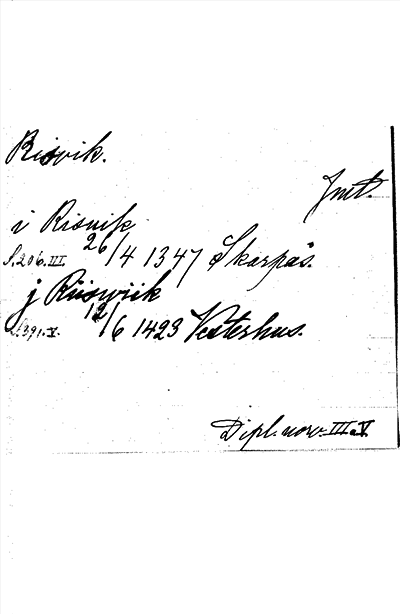 Risvik.
Jmt.
i Risvik
S. 206. III. 26/4 1347 Skarpås.
j Riiswiik
S. 391. V. 12/6 1423 Vesterhus.
Dipl. norv. III. V.